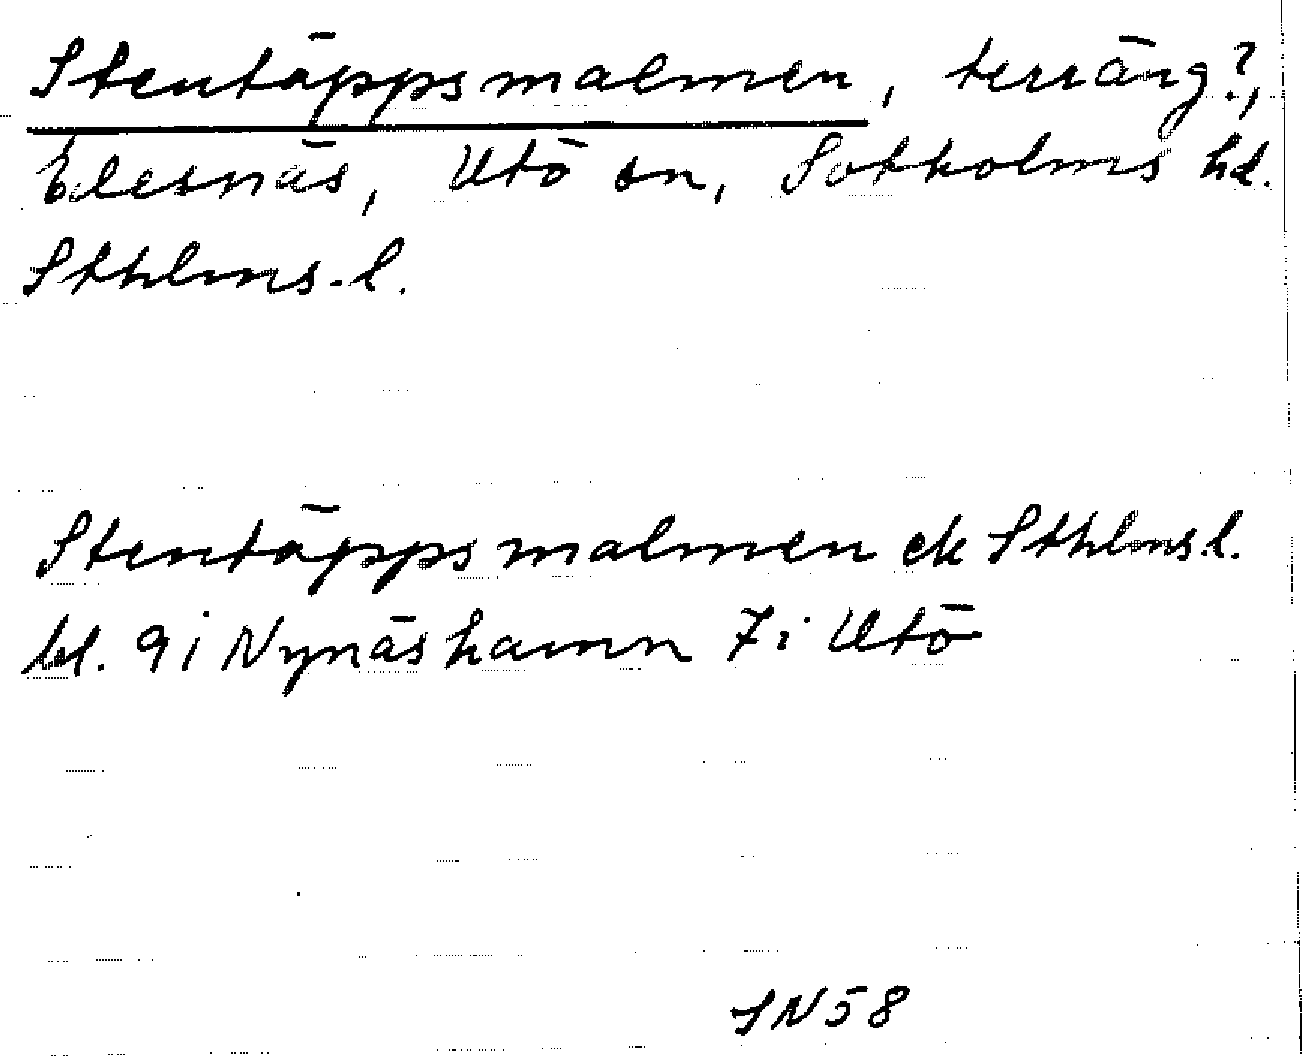 Stentäppsmalmen, terräng?,
Edesnäs, Utö sn, Sotholms hd.
Sthlms. l.
Stentäppsmalmen ek Sthlms.l.
bl. 9 i Nynäshamn 7 i Utö
SN 58